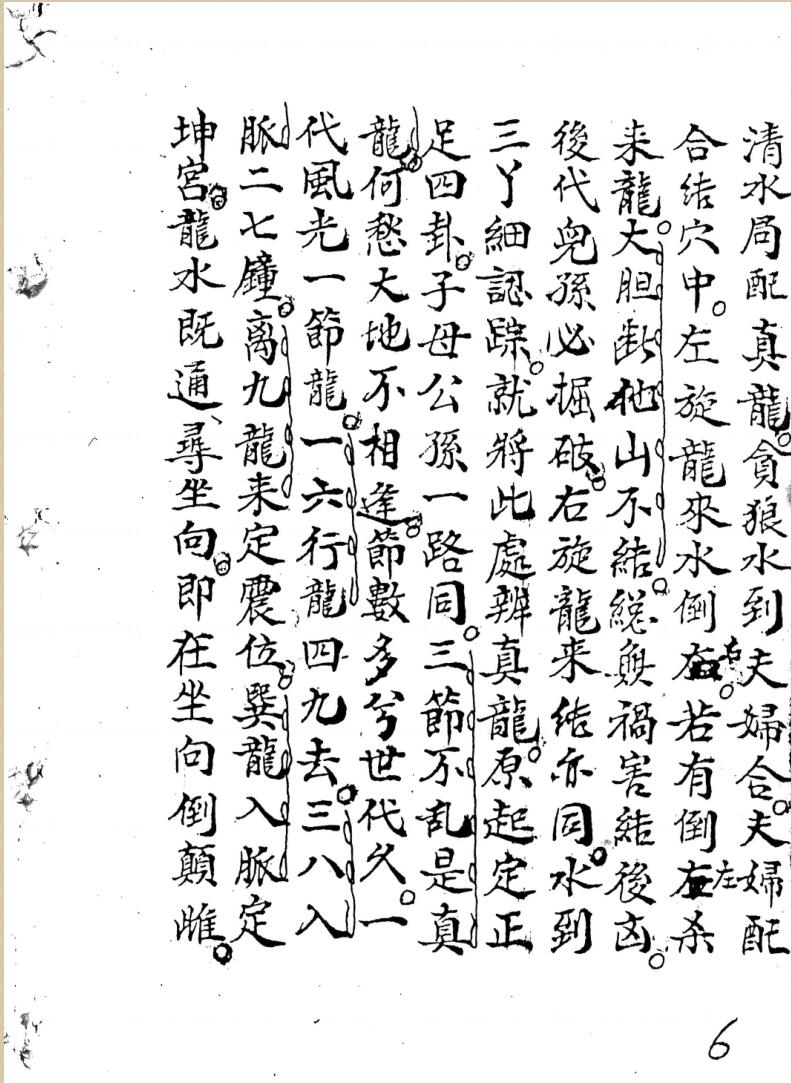 清水局配真龍貪狼水到夫婦合夫婦配
合结穴中左旋龍來水倒右若有倒左杀
来龍大胆断他山不結緫無禍害結後凶
後代兒孫必掘破右旋龍来结亦同水到
三丫細認踪就將此處辨真龍原起定正
足四卦子母公孫一路同三節不乱是真
龍何愁大地不相逢節數多兮世代久一
代風光一節龍一六行龍四九去三八入
脈二七鐘离九龍来定震位巽龍入脈定
坤宮龍水既通尋坐向即在坐向倒顛雌
6